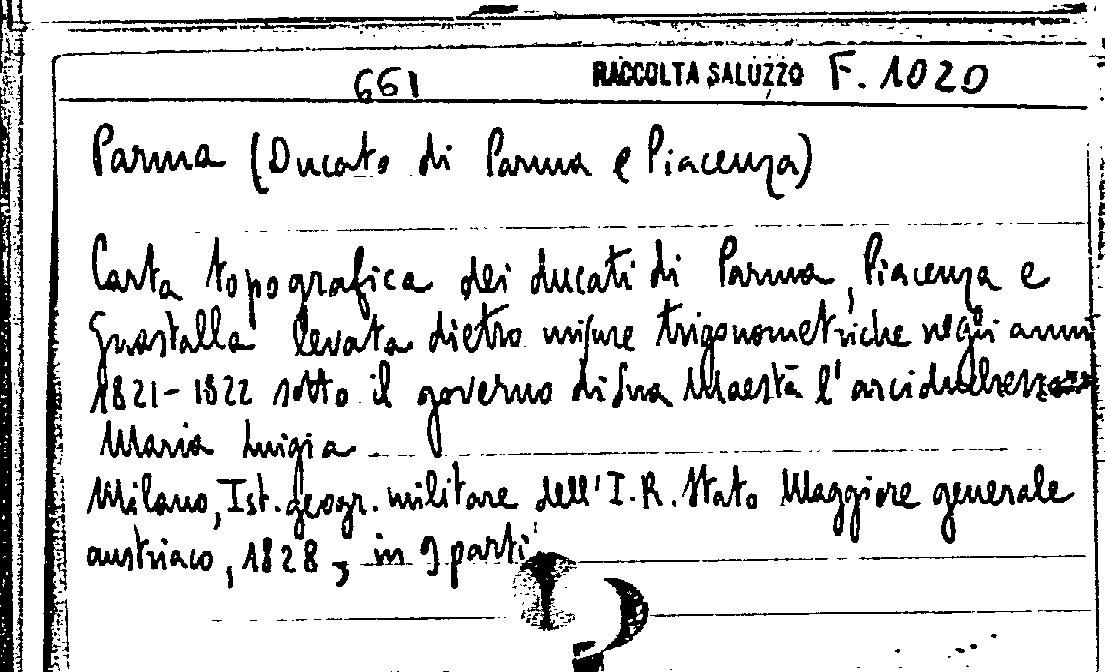 661 RACCOLTA SALUZZO F. 1020
Parma (Ducato di Parma e Piacenza)
Carta topografica dei ducati di Parma, Piacenza e
Guastalla levata dietro misure trigonometriche negli anni
1821-1822 sotto il governo di Sua Maestà l'arciduchessa
Maria Luigia
Milano, Ist. geogr. militare dell'I.R. Stato Maggiore generale
austriaco, 1828, in 9 parti